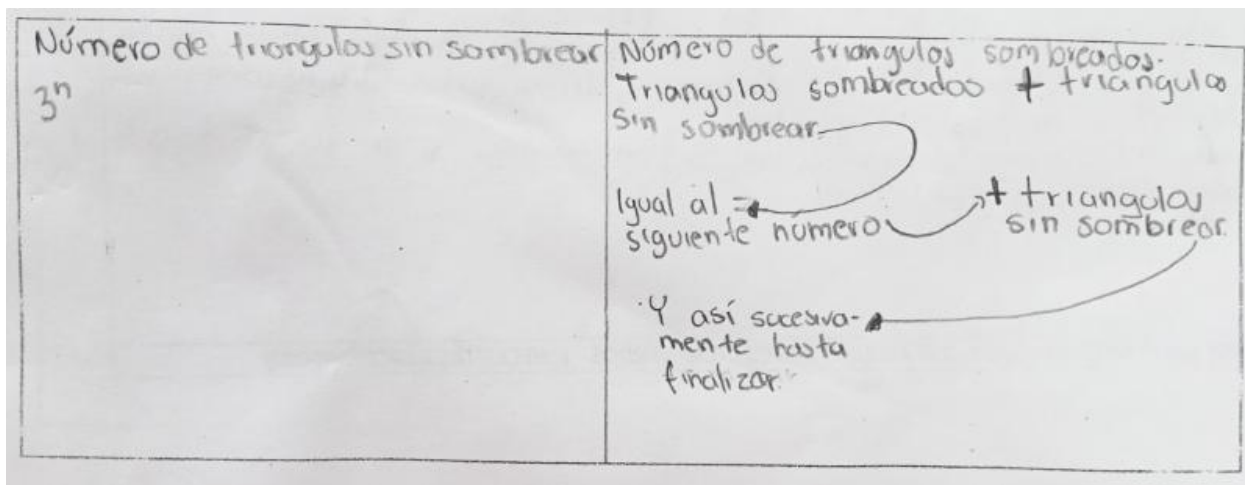 Número de triangulos sin sombrear
3ⁿ
Número de triangulos sombreados.
Triangulos sombreados + triangulos
sin sombrear
Igual al =
siguiente número
+ triangulos
sin sombrear.
Y así sucesiva-
mente hasta
finalizar.